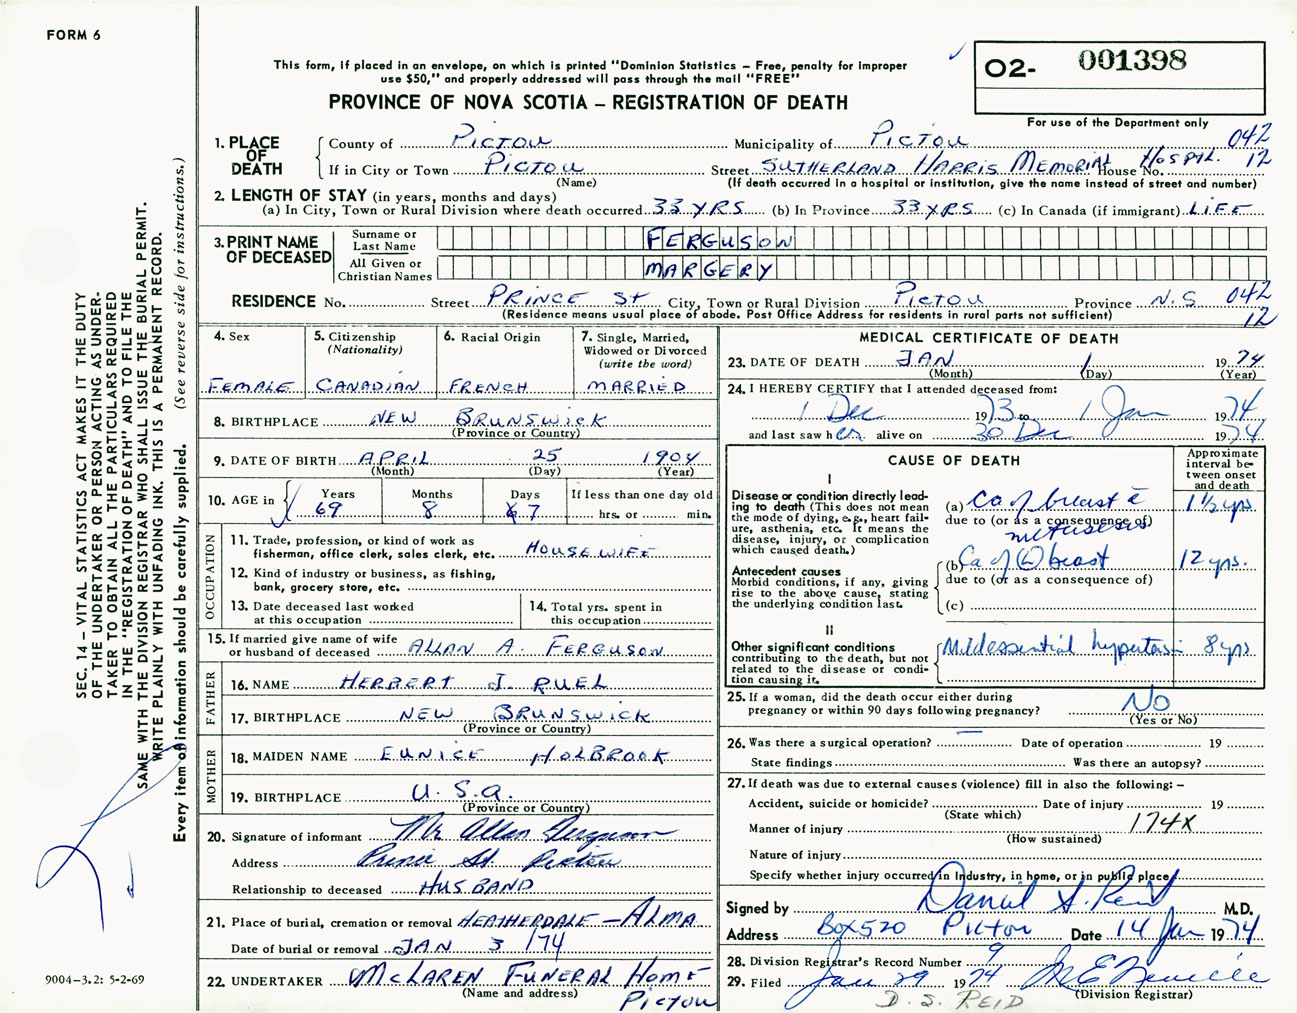 FORM 6
This form, if placed in an envelope, on which is printed "Dominion Statistics – Free, penalty for improper
use $50," and properly addressed will pass through the mail "FREE"
PROVINCE OF NOVA SCOTIA – REGISTRATION OF DEATH
02- 001398
For use of the Department only
1. PLACE OF DEATH
County of PICTOU Municipality of PICTOU 042
If in City or Town PICTOU Street SUTHERLAND HARRIS MEMORIAL House No. HOSPTL. 12
(Name) (If death occurred in a hospital or institution, give the name instead of street and number)
2. LENGTH OF STAY (in years, months and days)
(a) In City, Town or Rural Division where death occurred 33 YRS (b) In Province 33 YRS (c) In Canada (if immigrant) LIFE
3. PRINT NAME OF DECEASED
Surname or Last Name FERGUSON
All Given or Christian Names MARGERY
RESIDENCE No. Street PRINCE ST City, Town or Rural Division PICTOU Province N.S 042
(Residence means usual place of abode. Post Office Address for residents in rural parts not sufficient) 12
4. Sex
FEMALE
5. Citizenship
(Nationality)
CANADIAN
6. Racial Origin
FRENCH
7. Single, Married,
Widowed or Divorced
(write the word)
MARRIED
8. BIRTHPLACE NEW BRUNSWICK
(Province or Country)
9. DATE OF BIRTH APRIL 25 1904
(Month) (Day) (Year)
10. AGE in
Years Months Days If less than one day old
69 8 7 hrs. or min.
OCCUPATION
11. Trade, profession, or kind of work as
fisherman, office clerk, sales clerk, etc. HOUSEWIFE
12. Kind of industry or business, as fishing,
bank, grocery store, etc.
13. Date deceased last worked
at this occupation
14. Total yrs. spent in
this occupation
15. If married give name of wife
or husband of deceased ALLAN A. FERGUSON
FATHER
16. NAME HERBERT J. RUEL
17. BIRTHPLACE NEW BRUNSWICK
(Province or Country)
MOTHER
18. MAIDEN NAME EUNICE HOLBROOK
19. BIRTHPLACE U.S.A.
(Province or Country)
20. Signature of informant Mr Allan Ferguson
Address Prince St. Pictou
Relationship to deceased HUSBAND
21. Place of burial, cremation or removal HEATHERDALE – ALMA
Date of burial or removal JAN 3 /74
22. UNDERTAKER McLAREN FUNERAL HOME
(Name and address) PICTOU
MEDICAL CERTIFICATE OF DEATH
23. DATE OF DEATH JAN 1 1974
(Month) (Day) (Year)
24. I HEREBY CERTIFY that I attended deceased from:
1 Dec 1973 to 1 Jan 1974
and last saw her alive on 30 Dec 1974
CAUSE OF DEATH
Approximate
interval be-
tween onset
and death
I
Disease or condition directly lead-
ing to death (This does not mean
the mode of dying, e.g., heart fail-
ure, asthenia, etc. It means the
disease, injury, or complication
which caused death.)
(a) Ca of breast c̄ 1½ yrs.
due to (or as a consequence of)
metastasis
Antecedent causes
Morbid conditions, if any, giving
rise to the above cause, stating
the underlying condition last.
(b) Ca of (L) breast 12 yrs.
due to (or as a consequence of)
(c)
II
Other significant conditions
contributing to the death, but not
related to the disease or condi-
tion causing it.
Mild essential hypertension 8 yrs
25. If a woman, did the death occur either during
pregnancy or within 90 days following pregnancy? NO
(Yes or No)
26. Was there a surgical operation? – Date of operation 19
State findings Was there an autopsy?
27. If death was due to external causes (violence) fill in also the following: –
Accident, suicide or homicide? Date of injury 19
(State which)
Manner of injury 174X
(How sustained)
Nature of injury
Specify whether injury occurred in Industry, in home, or in public place
Signed by Daniel S. Reid M.D.
Address Box 520 Pictou Date 14 Jan 1974
28. Division Registrar's Record Number 9
29. Filed Jan 29 1974
(Division Registrar)
D. S. REID
SEC. 14 – VITAL STATISTICS ACT MAKES IT THE DUTY
OF THE UNDERTAKER OR PERSON ACTING AS UNDER-
TAKER TO OBTAIN ALL THE PARTICULARS REQUIRED
IN THE "REGISTRATION OF DEATH" AND TO FILE THE
SAME WITH THE DIVISION REGISTRAR WHO SHALL ISSUE THE BURIAL PERMIT.
WRITE PLAINLY WITH UNFADING INK. THIS IS A PERMANENT RECORD.
Every item of information should be carefully supplied. (See reverse side for instructions.)
9004–3.2: 5-2-69